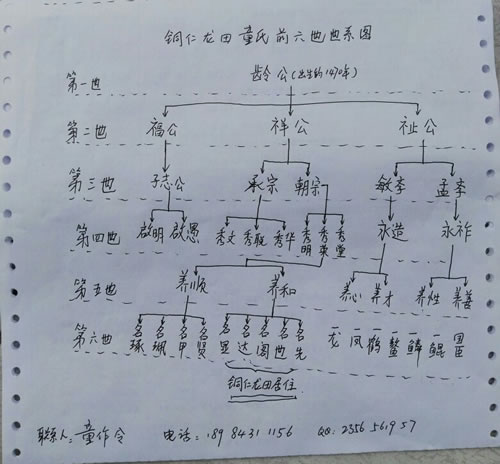 铜仁龙田童氏前六世世系图
第一世 龄公(出生约1470年)
第二世 福公 祥公 祉公
第三世 子志公 承宗 朝宗 敏李 孟李
第四世 啟明 啟愚 秀文 秀聪 秀华 秀明 秀荣 秀堂 永造 永祚
第五世 养顺 养和 养心 养才 养性 养善
第六世 名琢 名珮 名甲 名贤 名显 名达 名闻 名世 名先 一龙 一凤 一鹤 一鳌 一鳞 一鲲
铜仁龙田居住
联系人:童作令 电话:189 8431 1156 QQ:2356 5619 57